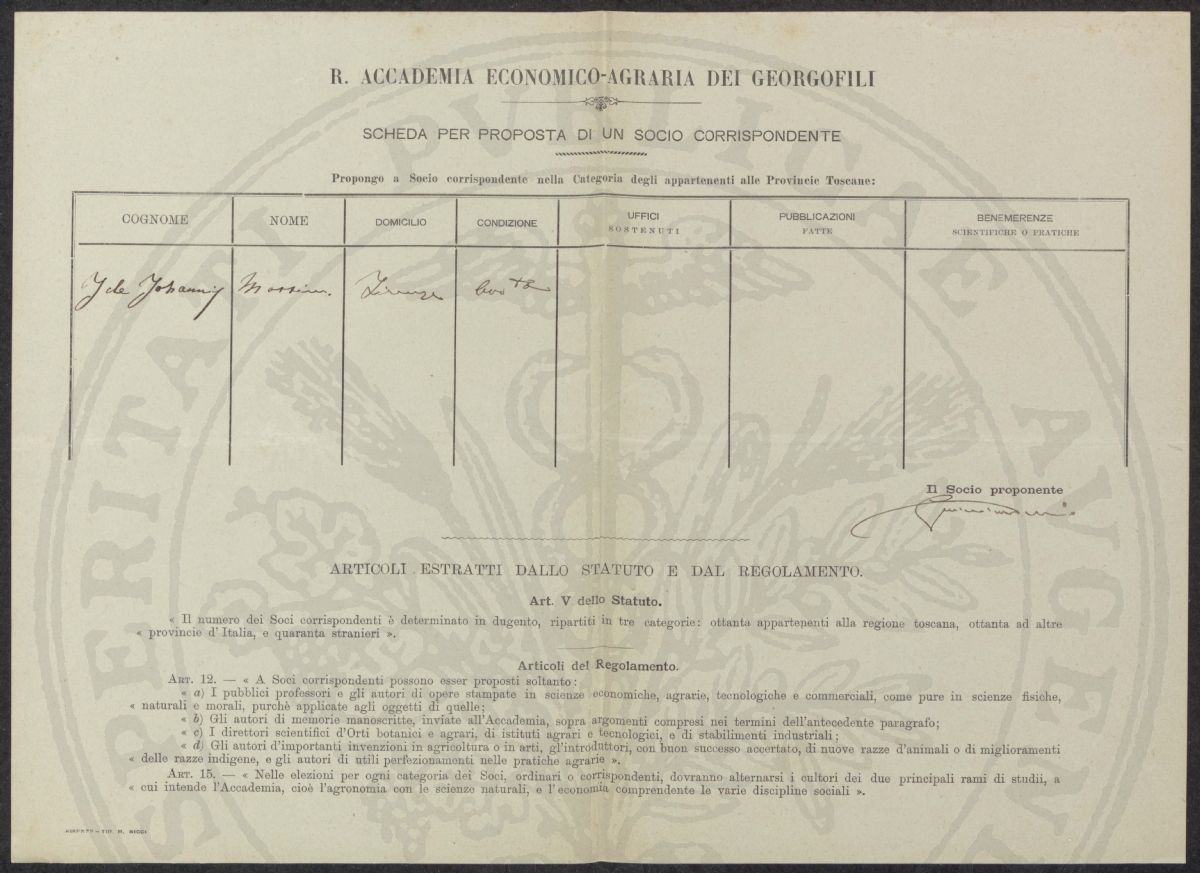 R. ACCADEMIA ECONOMICO-AGRARIA DEI GEORGOFILI
SCHEDA PER PROPOSTA DI UN SOCIO CORRISPONDENTE
Propongo a Socio corrispondente nella Categoria degli appartenenti alle Provincie Toscane:
COGNOME NOME DOMICILIO CONDIZIONE UFFICI SOSTENUTI PUBBLICAZIONI FATTE BENEMERENZE SCIENTIFICHE O PRATICHE
de Johannis Firenze
Il Socio proponente
ARTICOLI ESTRATTI DALLO STATUTO E DAL REGOLAMENTO.
Art. V dello Statuto.
« Il numero dei Soci corrispondenti è determinato in dugento, ripartiti in tre categorie: ottanta appartenenti alla regione toscana, ottanta ad altre
« provincie d'Italia, e quaranta stranieri ».
Articoli del Regolamento.
ART. 12. — « A Soci corrispondenti possono esser proposti soltanto:
« a) I pubblici professori e gli autori di opere stampate in scienze economiche, agrarie, tecnologiche e commerciali, come pure in scienze fisiche,
« naturali e morali, purchè applicate agli oggetti di quelle;
« b) Gli autori di memorie manoscritte, inviate all'Accademia, sopra argomenti compresi nei termini dell'antecedente paragrafo;
« c) I direttori scientifici d'Orti botanici e agrari, di istituti agrari e tecnologici, e di stabilimenti industriali;
« d) Gli autori d'importanti invenzioni in agricoltura o in arti, gl'introduttori, con buon successo accertato, di nuove razze d'animali o di miglioramenti
« delle razze indigene, e gli autori di utili perfezionamenti nelle pratiche agrarie ».
ART. 15. — « Nelle elezioni per ogni categoria dei Soci, ordinari o corrispondenti, dovranno alternarsi i cultori dei due principali rami di studii, a
« cui intende l'Accademia, cioè l'agronomia con le scienze naturali, e l'economia comprendente le varie discipline sociali ».
FIRENZE — TIP. M. RICCI
PROSPERITATI PVBLICAE AVGENDAE